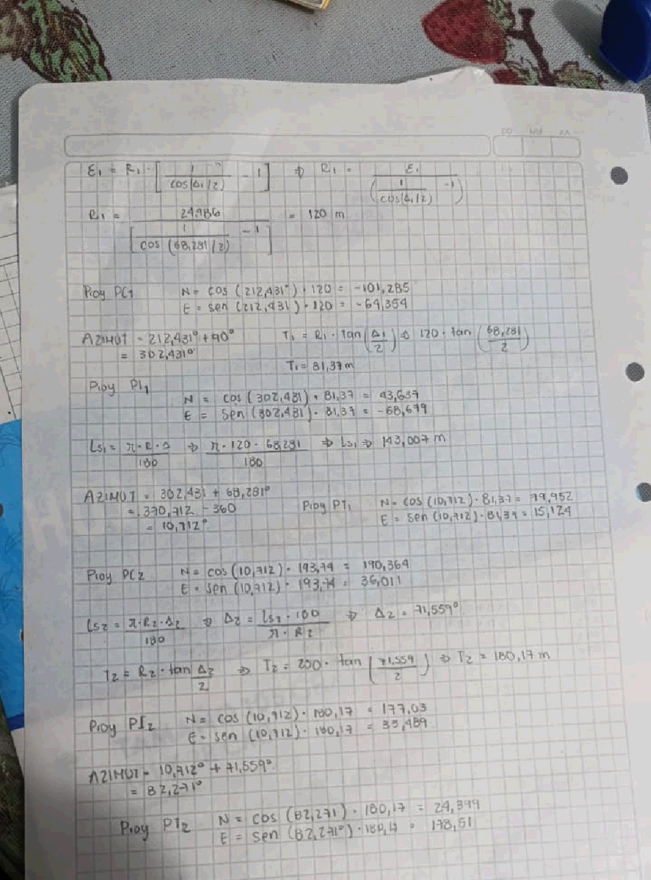 E₁ = R₁ · [ 1 / cos(Δ₁/2) - 1 ] ⇒ R₁ = E₁ / ( 1 / cos(Δ₁/2) - 1 )
R₁ = 24,986 / [ 1 / cos (68,281/2) - 1 ] = 120 m
Proy PC₁ N = cos (212,431°) · 120 = -101,285
E = sen (212,431) · 120 = -64,354
AZIMUT = 212,431° + 90° T₁ = R₁ · tan (Δ₁/2) ⇒ 120 · tan (68,281/2)
= 302,431° T₁ = 81,37 m
Proy PI₁
N = cos (302,431) · 81,37 = 43,639
E = sen (302,431) · 81,37 = -68,679
Ls₁ = π·R·Δ / 180 ⇒ π · 120 · 68,281 / 180 ⇒ Ls₁ ⇒ 143,007 m
AZIMUT = 302,431 + 68,281° Proy PT₁ N = cos (10,712) · 81,37 = 79,952
= 370,712 - 360 E = sen (10,712) · 81,37 = 15,124
= 10,712°
Proy PC₂ N = cos (10,712) · 193,74 = 190,364
E = sen (10,712) · 193,74 = 36,011
Ls₂ = π·R₂·Δ₂ / 180 ⇒ Δ₂ = Ls₂ · 180 / π · R₂ ⇒ Δ₂ = 71,559°
T₂ = R₂ · tan Δ₂/2 ⇒ T₂ = 250 · tan (71,559/2) ⇒ T₂ = 180,17 m
Proy PI₂ N = cos (10,712) · 180,17 = 177,03
E = sen (10,712) · 180,17 = 33,489
AZIMUT = 10,712° + 71,559°
= 82,271°
Proy PT₂ N = cos (82,271) · 180,17 = 24,399
E = sen (82,271°) · 180,17 = 178,51